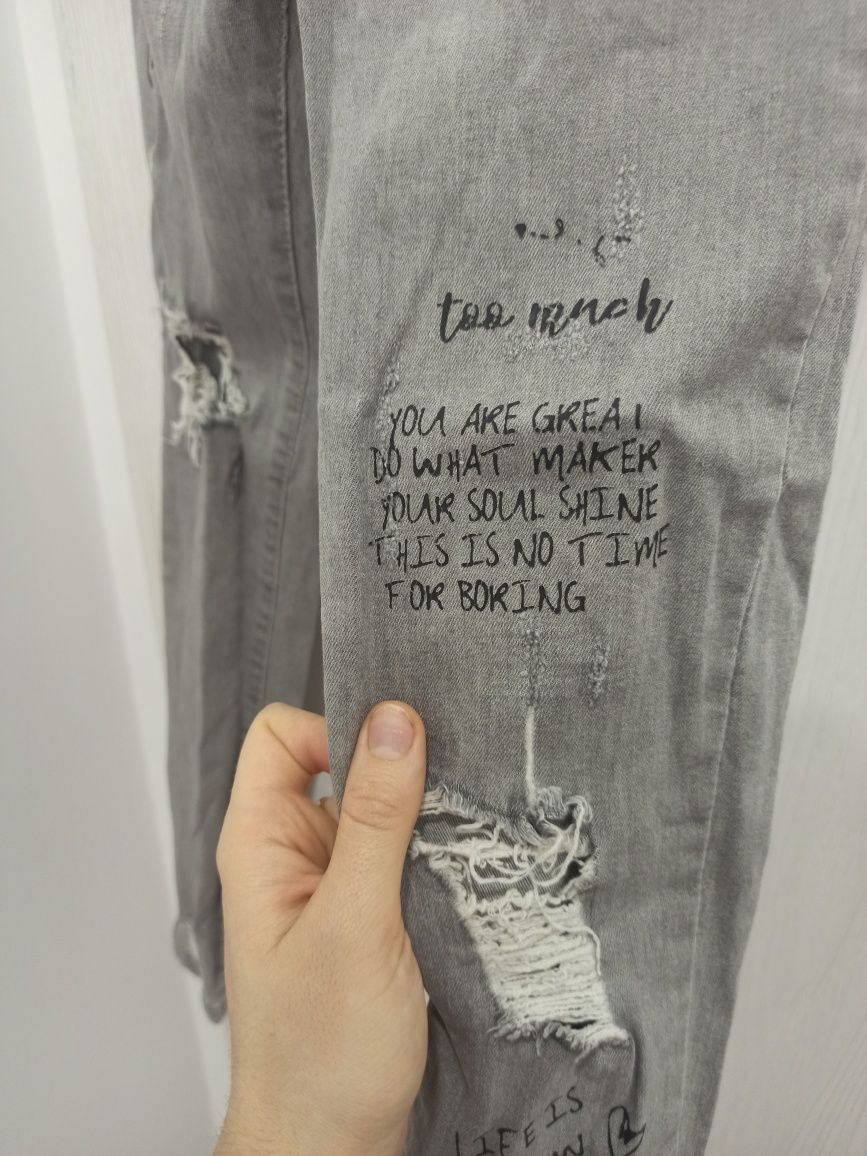 too much
YOU ARE GREAT
DO WHAT MAKER
YOUR SOUL SHINE
THIS IS NO TIME
FOR BORING
LIFE IS